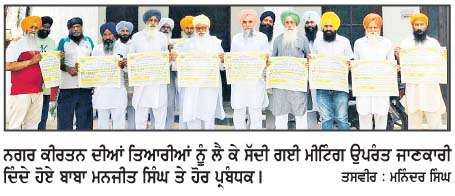 ਨਗਰ ਕੀਰਤਨ ਦੀਆਂ ਤਿਆਰੀਆਂ ਨੂੰ ਲੈ ਕੇ ਸੱਦੀ ਗਈ ਮੀਟਿੰਗ ਉਪਰੰਤ ਜਾਣਕਾਰੀ
ਦਿੰਦੇ ਹੋਏ ਬਾਬਾ ਮਨਜੀਤ ਸਿੰਘ ਤੇ ਹੋਰ ਪ੍ਰਬੰਧਕ। ਤਸਵੀਰ : ਮਨਿੰਦਰ ਸਿੰਘ